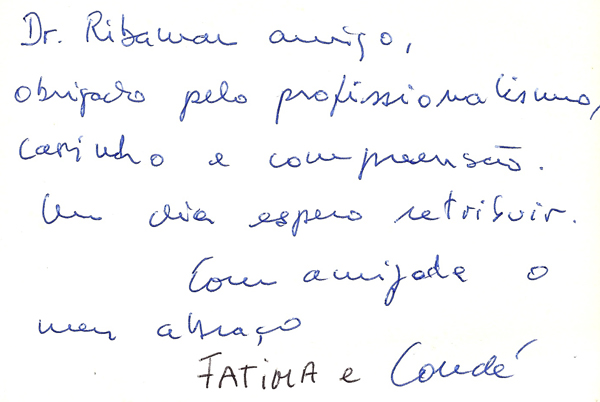 Dr. Ribamar amigo,
obrigado pelo profissionalismo,
carinho e compreensão.
Um dia espero retribuir.
Com amizade o
meu abraço
FATIMA e Condé